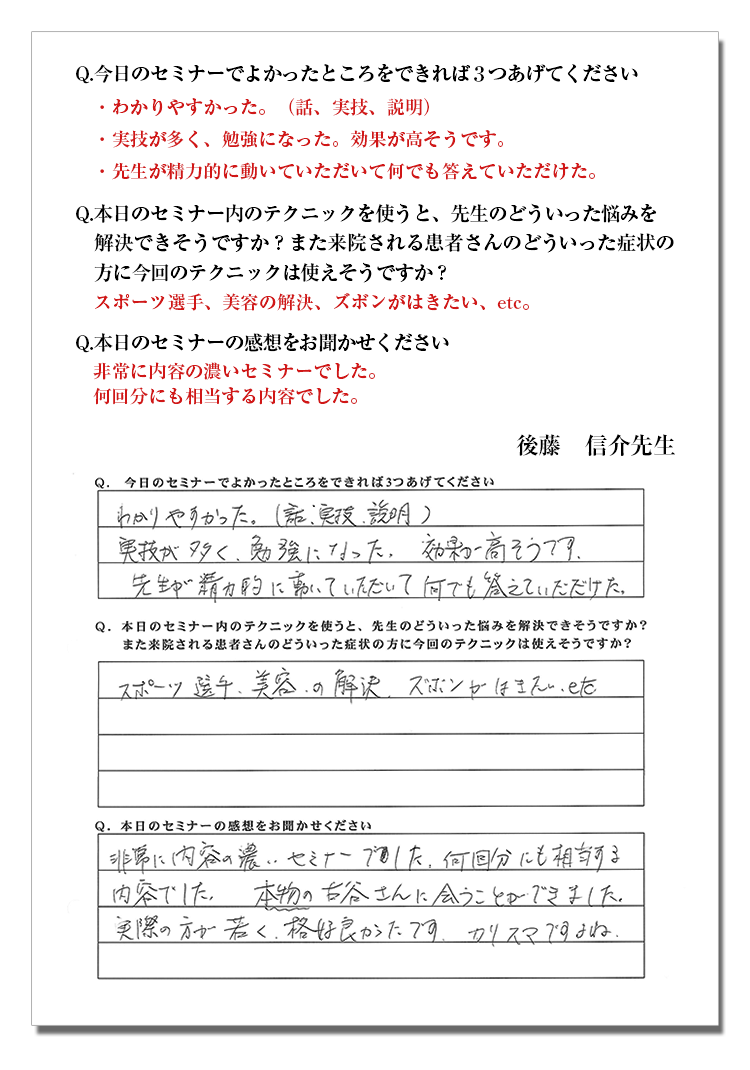 Q.今日のセミナーでよかったところをできれば３つあげてください
・わかりやすかった。（話、実技、説明）
・実技が多く、勉強になった。効果が高そうです。
・先生が精力的に動いていただいて何でも答えていただけた。
Q.本日のセミナー内のテクニックを使うと、先生のどういった悩みを
解決できそうですか？また来院される患者さんのどういった症状の
方に今回のテクニックは使えそうですか？
スポーツ選手、美容の解決、ズボンがはきたい、etc。
Q.本日のセミナーの感想をお聞かせください
非常に内容の濃いセミナーでした。
何回分にも相当する内容でした。
後藤　信介先生
Q.　今日のセミナーでよかったところをできれば3つあげてください
わかりやすかった。（話、実技、説明）
実技が多く、勉強になった。効果が高そうです。
先生が精力的に動いていただいて何でも答えていただけた。
Q.　本日のセミナー内のテクニックを使うと、先生のどういった悩みを解決できそうですか？
また来院される患者さんのどういった症状の方に今回のテクニックは使えそうですか？
スポーツ選手、美容の解決、ズボンがはきたい、etc
Q.　本日のセミナーの感想をお聞かせください
非常に内容の濃いセミナーでした。何回分にも相当する
内容でした。　本物の古谷さんに会うことができました。
実際の方が若く、格好良かったです。カリスマですよね。